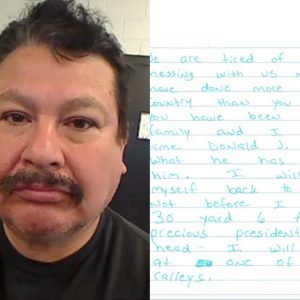 We are tired of
messing with us
have done more
country than you
you have been
family and I
time Donald J.
what he has
him. I will
myself back to
not before I
30 yard 6
precious president
head - I will
at one of
ralleys.